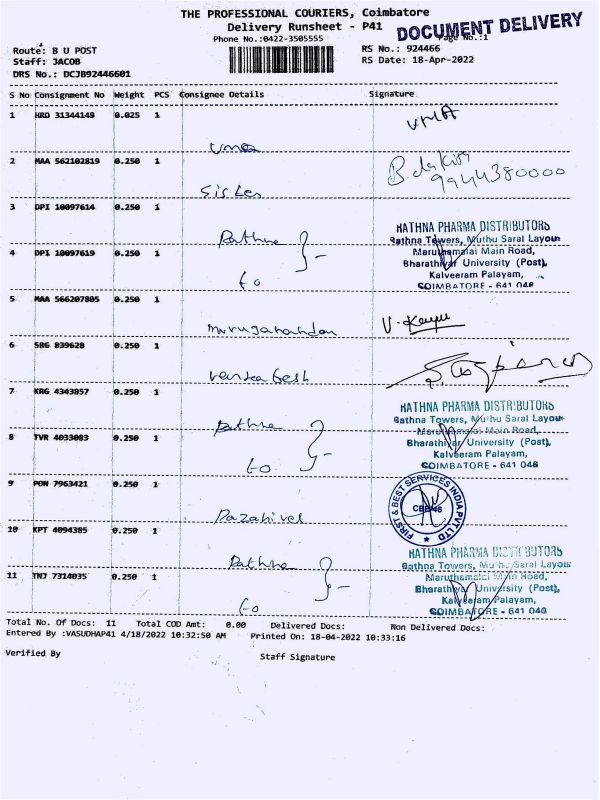 THE PROFESSIONAL COURIERS, Coimbatore
Delivery Runsheet - P41
DOCUMENT DELIVERY
Phone No.:0422-3505555
Page No.:1
Route: B U POST
RS No.: 924466
Staff: JACOB
RS Date: 18-Apr-2022
DRS No.: DCJB92446601
S No Consignment No Weight PCS Consignee Details Signature
1 HRD 31344149 0.025 1
Uma
UMA
2 MAA 562102819 0.250 1
Sister
9944380000
3 DPI 10097614 0.250 1
Rathna
RATHNA PHARMA DISTRIBUTORS
Rathna Towers, Muthu Saral Layout
4 DPI 10097619 0.250 1
Maruthamalai Main Road,
Bharathiyar University (Post),
Kalveeram Palayam,
COIMBATORE - 641 046
to
5 MAA 566207805 0.250 1
Muruganandan
6 SRG 839628 0.250 1
Venkatesh
7 KRG 4343857 0.250 1
Rathna
RATHNA PHARMA DISTRIBUTORS
Rathna Towers, Muthu Saral Layout
Maruthamalai Main Road,
8 TVR 4033083 0.250 1
Bharathiyar University (Post),
Kalveeram Palayam,
COIMBATORE - 641 046
to
9 PON 7963421 0.250 1
Pazanivel
FIRST & BEST SERVICES INDIA PVT LTD
CBE-46
10 KPT 4094385 0.250 1
Rathna
RATHNA PHARMA DISTRIBUTORS
Rathna Towers, Muthu Saral Layout
11 TNJ 7314035 0.250 1
Maruthamalai Main Road,
Bharathiyar University (Post),
Kalveeram Palayam,
COIMBATORE - 641 046
to
Total No. Of Docs: 11 Total COD Amt: 0.00 Delivered Docs: Non Delivered Docs:
Entered By :VASUDHAP41 4/18/2022 10:32:50 AM Printed On: 18-04-2022 10:33:16
Verified By
Staff Signature